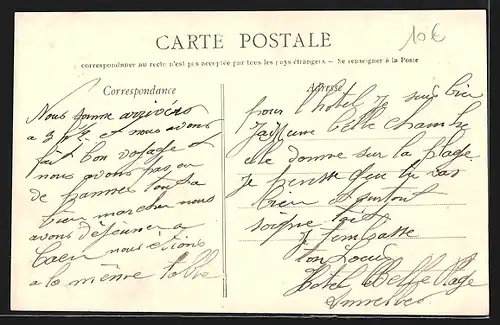 CARTE POSTALE
10€
La correspondance au recto n'est pas acceptée par tous les pays étrangers. - Se renseigner à la Poste
Correspondance
Nous somme arrivéro
a 3 et nous avons
fait bon voyage et
nous avons pas eu
de pannes tout a
bien marcher nous
avons déjeuner a
Caen nous étions
a la même table
Adresse
pour l'hotel je suis bien
J'ai une belle chambre
elle donne sur la plage
Je pense que tu vas
bien et surtout
soigne toi
Je t'embrasse
ton
Hotel Belle Plage